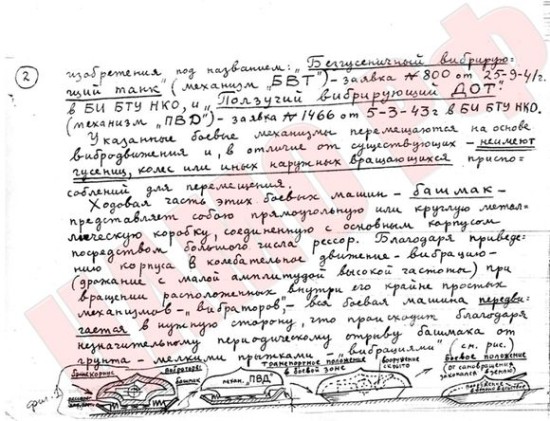 2
изобретения под названием: „Безгусеничный вибрирую-
щий танк" (механизм „БВТ") – заявка № 800 от 25-9-41г.
в БИ БТУ НКО, и „Ползучий вибрирующий ДОТ"
(механизм „ПВД") – заявка № 1466 от 5-3-43г в БИ БТУ НКО.
Указанные боевые механизмы перемещаются на основе
вибродвижения и, в отличие от существующих – неимеют
гусениц, колес или иных наружных вращающихся приспо-
соблений для перемещения.
Ходовая часть этих боевых машин – башмак –
представляет собою прямоугольную или круглую метал-
лическую коробку, соединенную с основным корпусом
посредством большого числа рессор. Благодаря приведе-
нию корпуса в колебательное движение – вибрацию –
(дрожание с малой амплитудой высокой частоты) при
вращении расположенных внутри его крайне простых
механизмов – „вибраторов", – вся боевая машина передви-
гается в нужную сторону, что происходит благодаря
незначительному периодическому отрыву башмака от
грунта – мелкими прыжками – „вибрациями" (см. рис.)
бронекорпус
вибраторы
башмак
механ. „ПВД"
транспортное положение
в боевой зоне
вооружение
скрыто
боевое положение
(от самовращения
закопался в землю)
фиг. 1